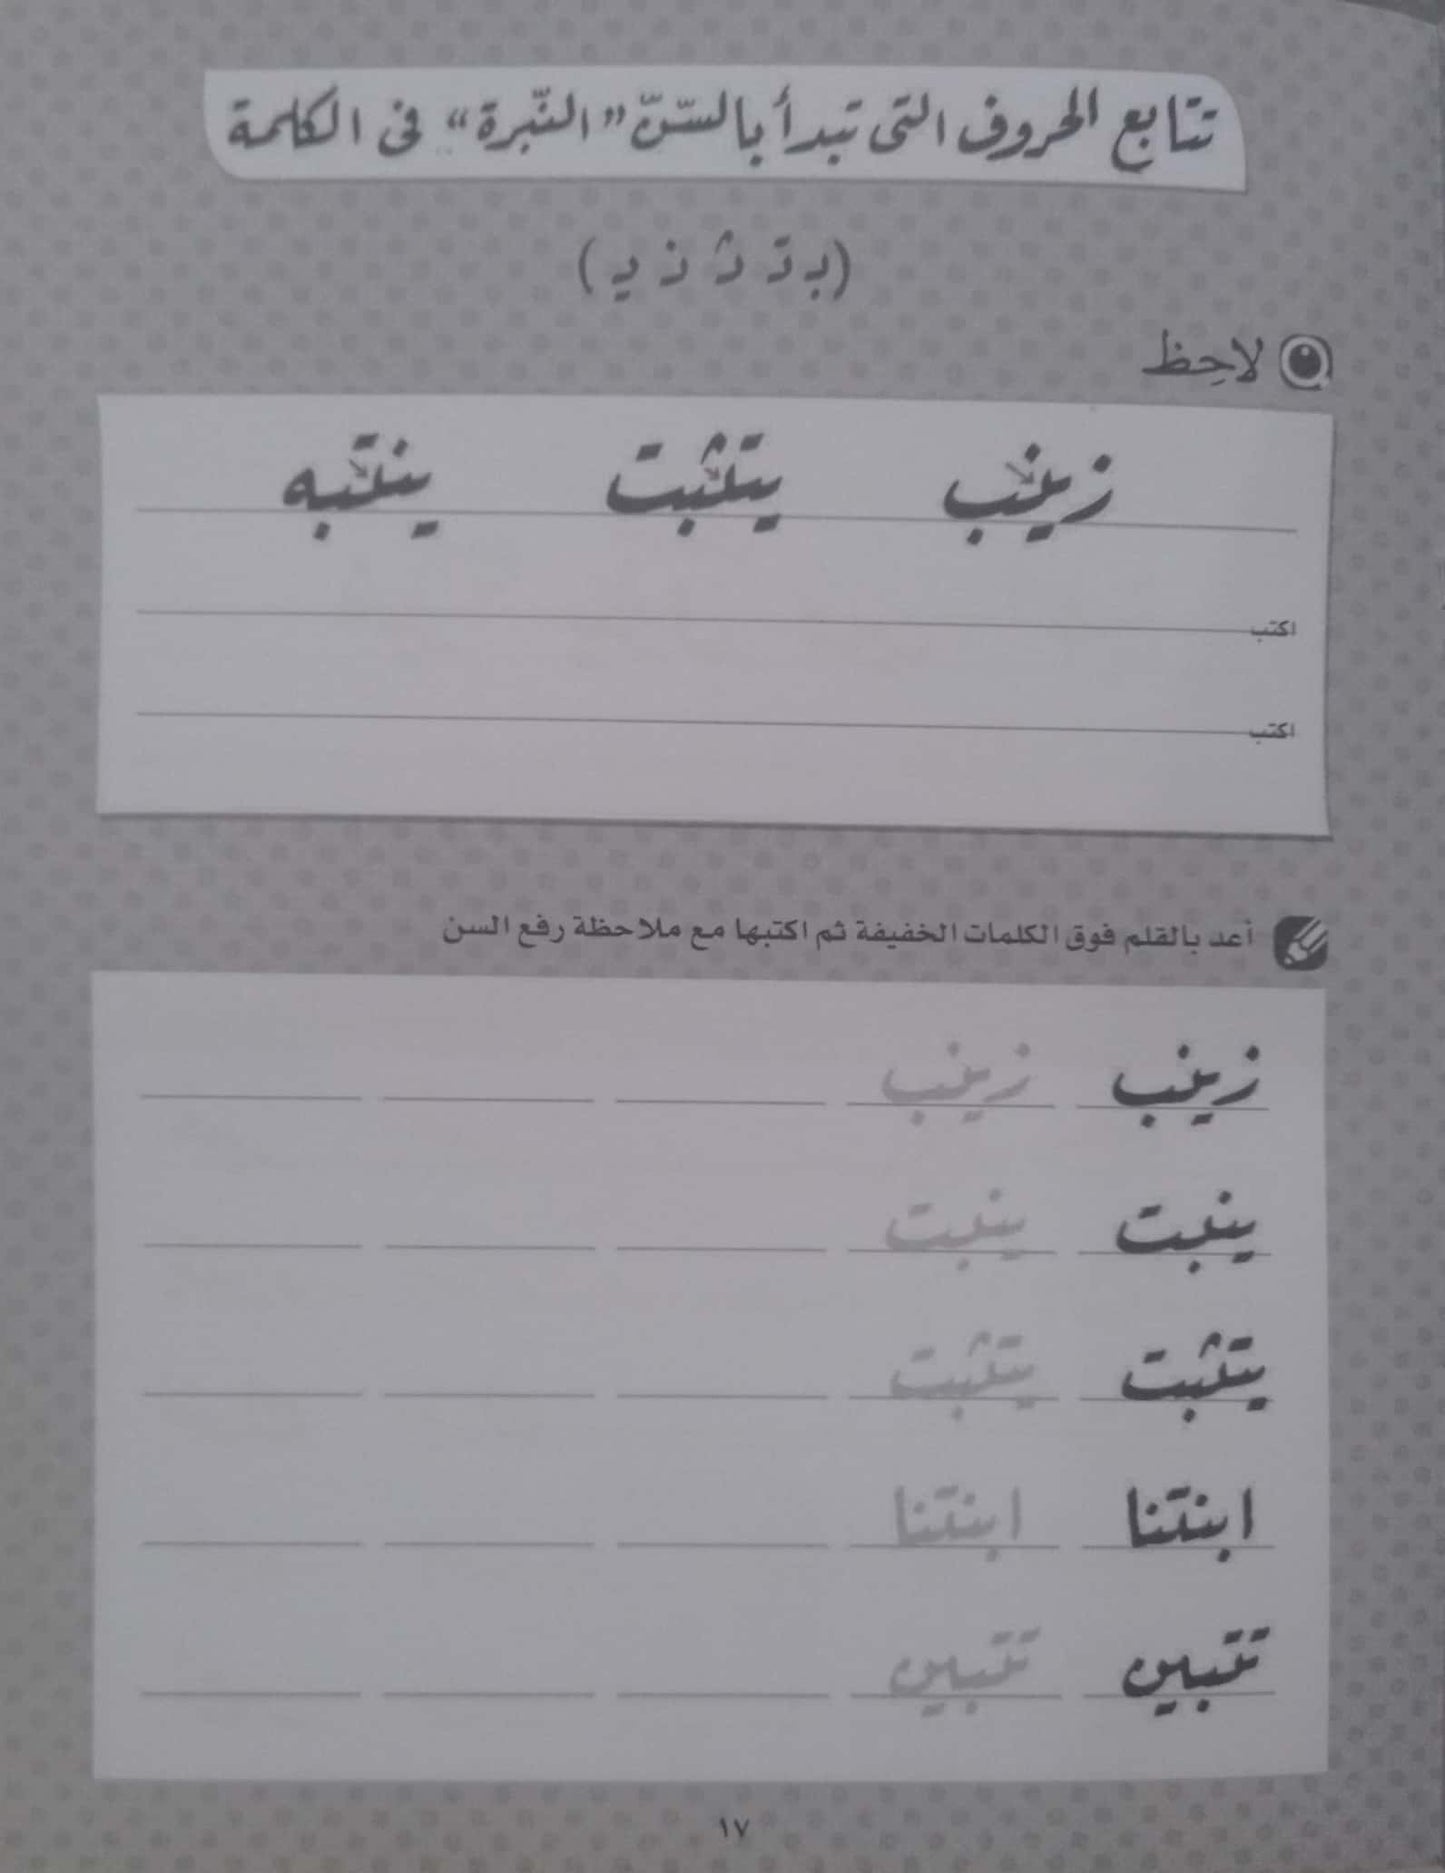 تتابع الحروف التى تبدأ بالسّنّ "النّبرة" فى الكلمة
(بـ تـ ثـ نـ يـ)
لاحِظ
زينب يتثبت ينتبه
اكتب
اكتب
أعد بالقلم فوق الكلمات الخفيفة ثم اكتبها مع ملاحظة رفع السن
زينب زينب
ينبت ينبت
يتثبت يتثبت
ابنتنا ابنتنا
تتبين تتبين
١٧